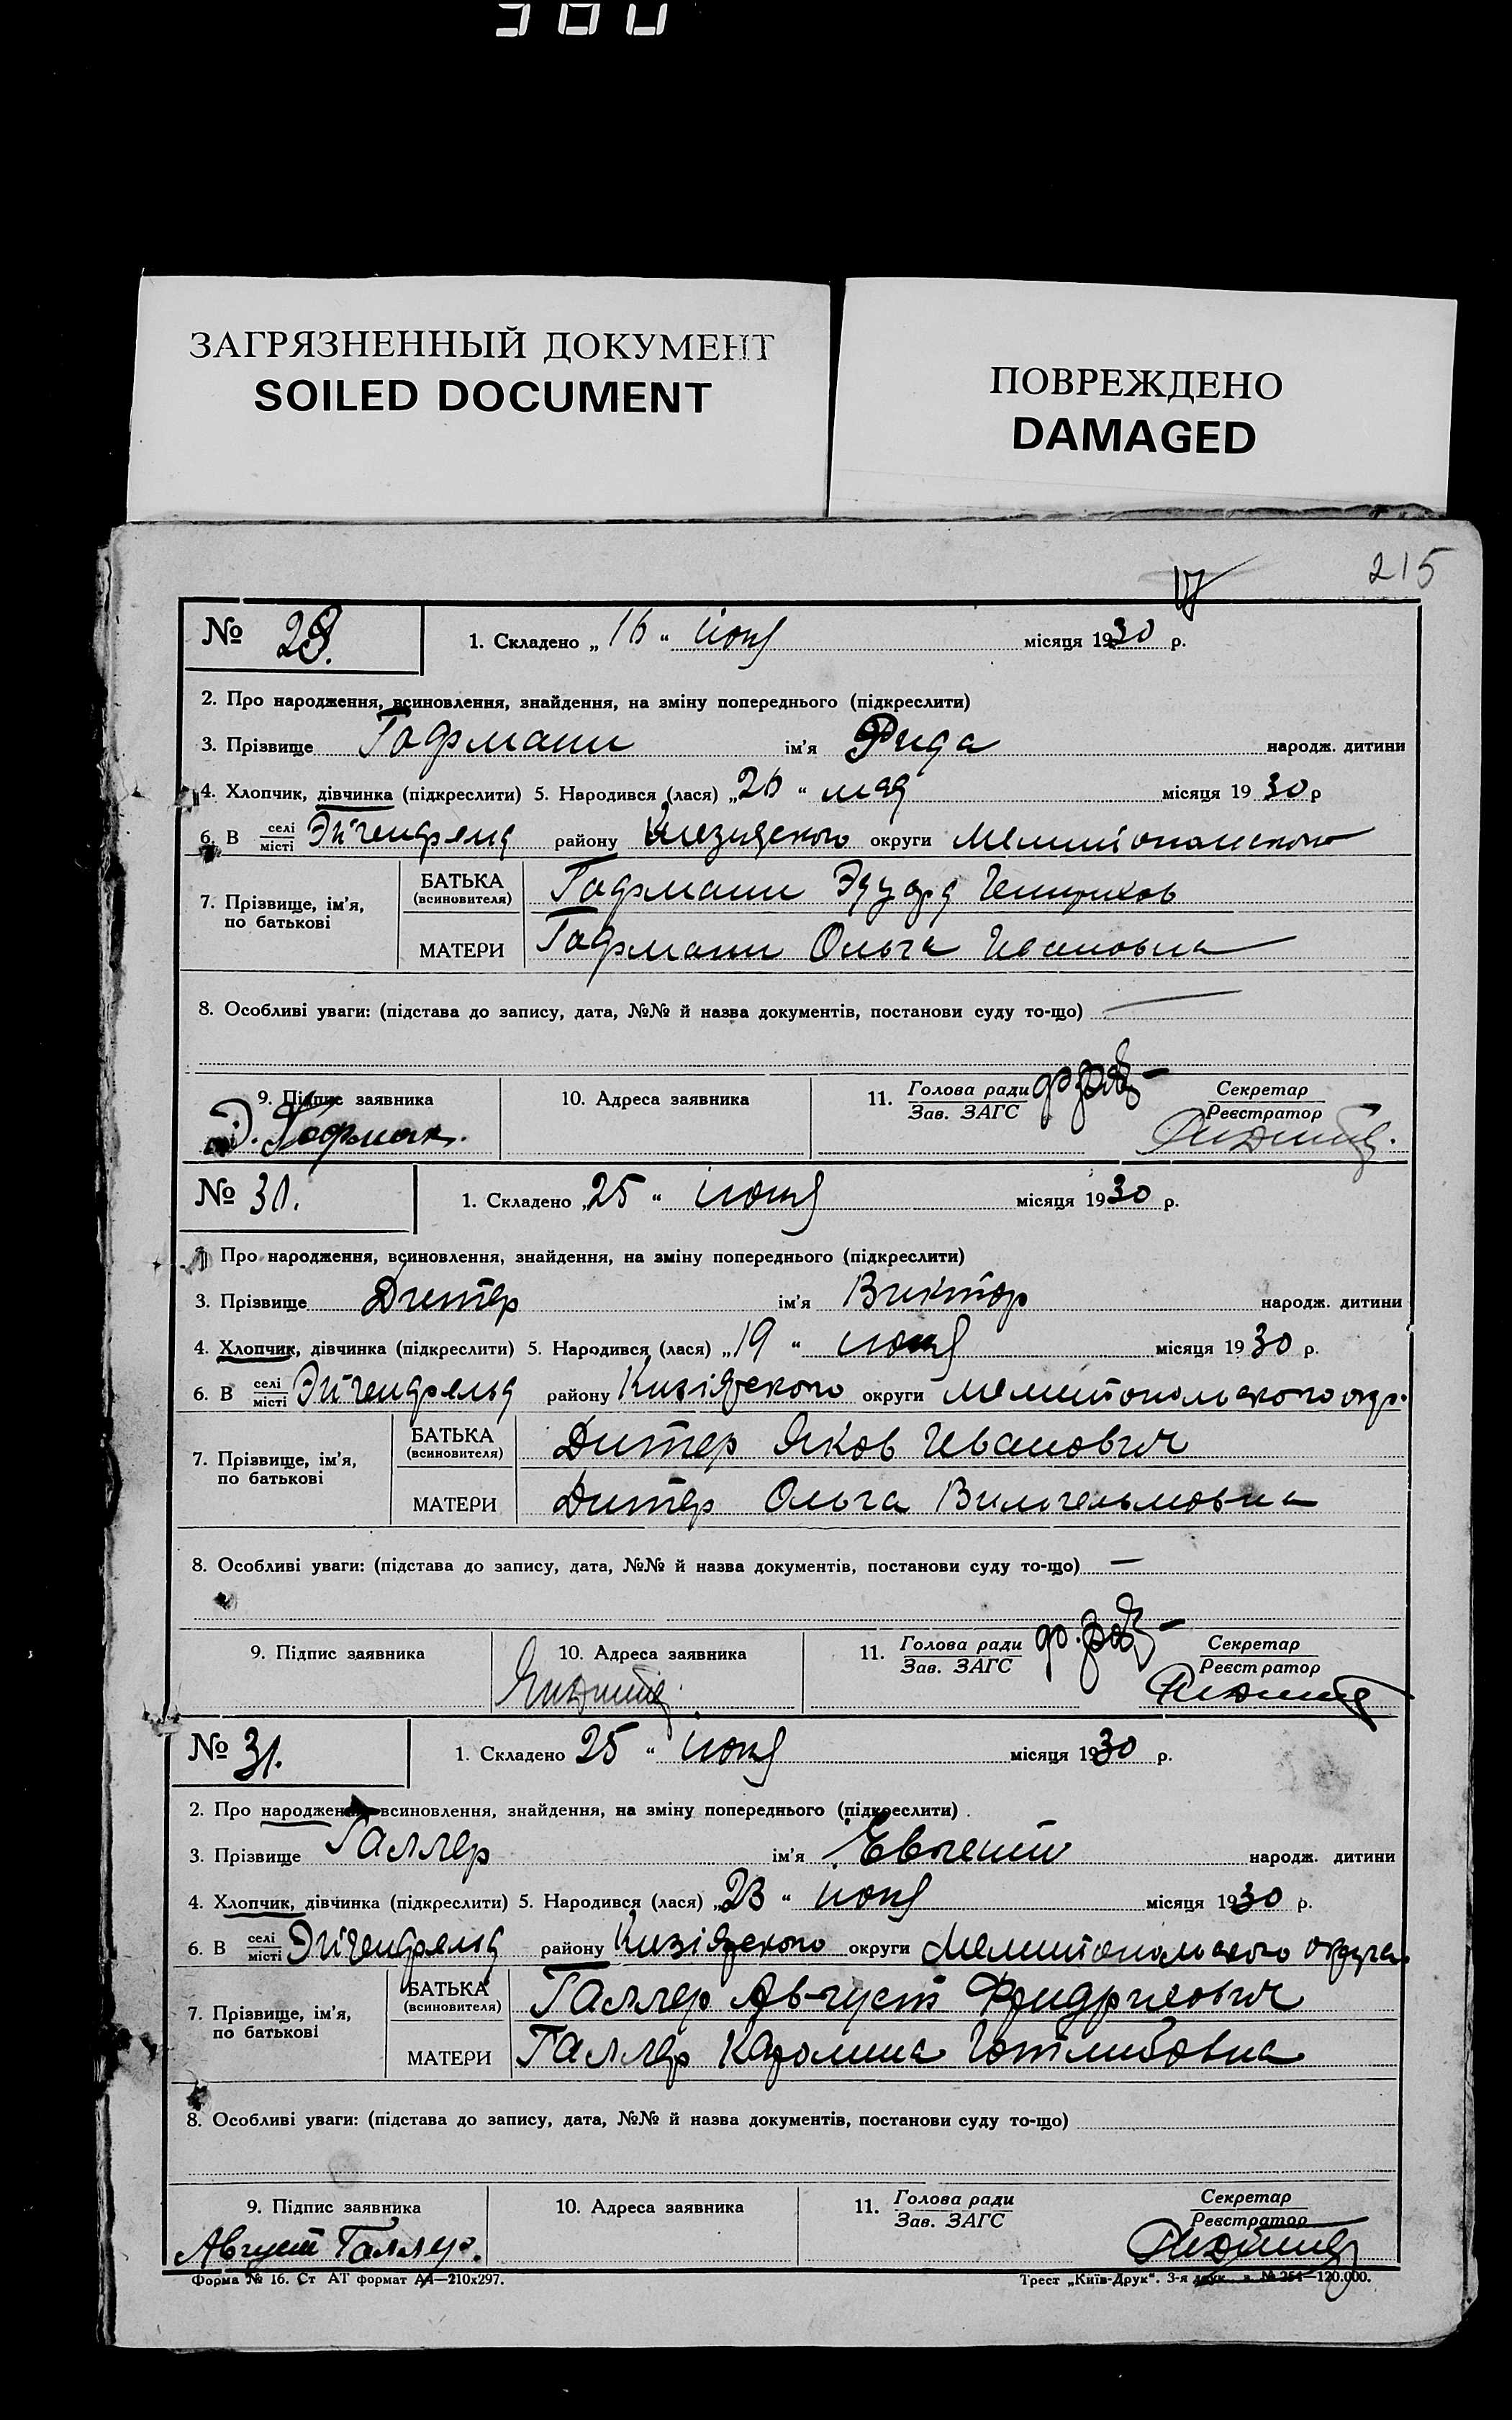 300
ЗАГРЯЗНЕННЫЙ ДОКУМЕНТ
SOILED DOCUMENT
ПОВРЕЖДЕНО
DAMAGED
215
№ 1. Складено „16“ июня місяця 1930 р.
2. Про народження, всиновлення, знайдення, на зміну попереднього (підкреслити)
3. Прізвище Гофманн ім'я Фрида народж. дитини
4. Хлопчик, дівчинка (підкреслити) 5. Народився (лася) „26“ мая місяця 1930 р
6. В селі/місті Эйгенфельд району округи Мелитопольского
7. Прізвище, ім'я, по батькові
БАТЬКА (всиновителя) Гофманн Эдуард Генрихов
МАТЕРИ Гофманн Ольга Ивановна
8. Особливі уваги: (підстава до запису, дата, №№ й назва документів, постанови суду то-що) —
9. Підпис заявника 10. Адреса заявника 11. Голова ради/Зав. ЗАГС Секретар/Реєстратор
Э. Гофман.
№ 30. 1. Складено „25“ июня місяця 1930 р.
Про народження, всиновлення, знайдення, на зміну попереднього (підкреслити)
3. Прізвище Дитер ім'я Виктор народж. дитини
4. Хлопчик, дівчинка (підкреслити) 5. Народився (лася) „19“ июня місяця 1930 р.
6. В селі/місті Эйгенфельд району Кизіярского округи Мелитопольского окр.
7. Прізвище, ім'я, по батькові
БАТЬКА (всиновителя) Дитер Яков Иванович
МАТЕРИ Дитер Ольга Вильгельмовна
8. Особливі уваги: (підстава до запису, дата, №№ й назва документів, постанови суду то-що) —
9. Підпис заявника 10. Адреса заявника 11. Голова ради/Зав. ЗАГС Секретар/Реєстратор
№ 31. 1. Складено 25“ июня місяця 1930 р.
2. Про народження, всиновлення, знайдення, на зміну попереднього (підкреслити)
3. Прізвище Галлер ім'я Евгений народж. дитини
4. Хлопчик, дівчинка (підкреслити) 5. Народився (лася) „23“ июня місяця 1930 р.
6. В селі/місті Эйгенфельд району Кизіярского округи Мелитопольского округа
7. Прізвище, ім'я, по батькові
БАТЬКА (всиновителя) Галлер Август Фридрихович
МАТЕРИ Галлер Каролина Готлибовна
8. Особливі уваги: (підстава до запису, дата, №№ й назва документів, постанови суду то-що)
9. Підпис заявника 10. Адреса заявника 11. Голова ради/Зав. ЗАГС Секретар/Реєстратор
Август Галлер.
Форма № 16. Ст АТ формат А4—210х297. Трест „Київ-Друк“. 3-я друк. з. № 254—120.000.